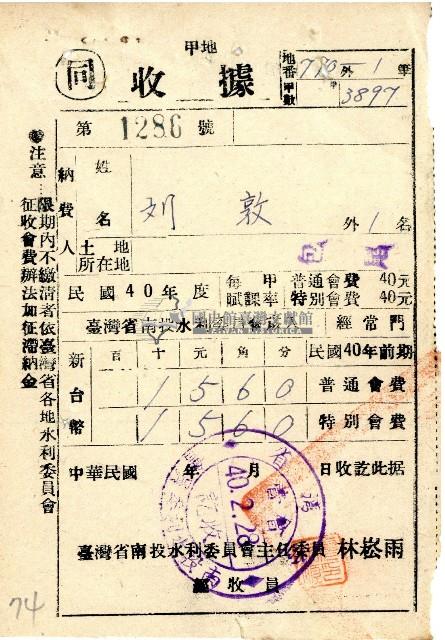 甲地
同
收據
地番 770-1 外1筆
甲數 甲 3897
第1286號
納費人
姓名 刘敦 外1名
土地所在地
民國40年度
每甲賦課率
普通會費 40元
特別會費 40元
臺灣省南投水利委員會
經常門
新台幣
百十元角分
民國40年前期
1560 普通會費
1560 特別會費
中華民國 年 月 日收訖此据
40.2.28
臺灣省南投水利委員會主任委員 林崧雨
經收員
注意…限期內不繳清者依臺灣省各地水利委員會
征收會費辦法加征滯納金
國史館臺灣文獻館
74